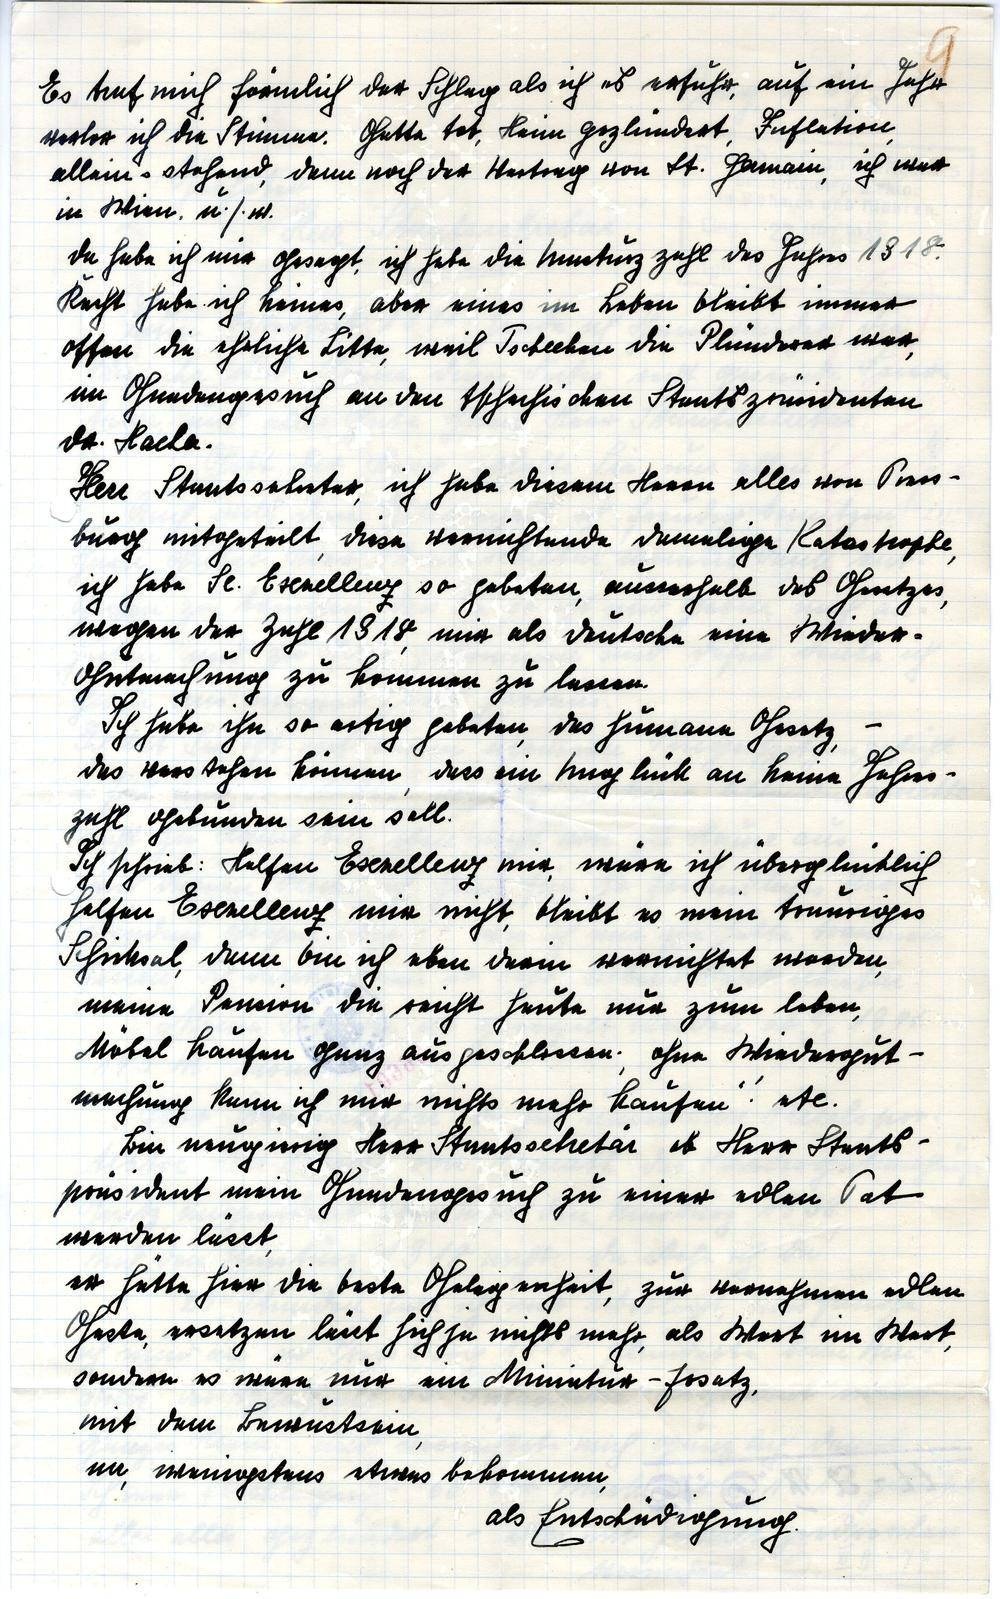 9
Es traf mich förmlich der Schlag als ich es erfuhr, auf ein Jahr
verlor ich die Stimme. Gatte tot, Heim geplündert, Inflation,
allein-stehend, dann noch der Vertrag von St. Germain, ich war
in Wien. u.s.w.
da habe ich mir gesagt, ich habe die Umsturzzahl des Jahres 1918.
Recht habe ich keines, aber eines im Leben bleibt immer
offen die ehrliche Bitte, weil Tschechen die Plünderer war,
im Gnadengesuch an den tschechischen Staatspräsidenten
Dr. Hacha.
Herr Staatssekretär, ich habe diesem Herrn alles von Press-
burg mitgeteilt, diese vernichtende damalige Katastrophe,
ich habe Se. Exzellenz so gebeten, ausserhalb des Gesetzes,
wegen der Zahl 1918, mir als deutsche eine Wieder-
Gutmachung zu kommen zu lassen.
Ich habe ihn so artig gebeten, das humane Gesetz, -
das verstehen können, dass ein Unglück an keine Jahres-
zahl gebunden sein soll.
Ich schrieb: Helfen Exzellenz mir, wäre ich überglücklich
helfen Exzellenz mir nicht, bleibt es mein trauriges
Schicksal, dann bin ich eben darin vernichtet worden,
meine Pension die reicht heute nur zum leben,
Möbel kaufen ganz ausgeschlossen. ohne Wiedergut-
machung kann ich mir nichts mehr kaufen"! etc.
Bin neugierig Herr Staatssekretär ob Herr Staats-
präsident mein Gnadengesuch zu einer edlen Tat
werden lässt,
er hätte hier die beste Gelegenheit, zur vornehmen edlen
Geste, ersetzen lässt sich ja nichts mehr, als Wert im Wert,
sondern es wäre nur ein Miniatur-Ersatz,
mit dem Bewustsein,
na, wenigstens etwas bekommen,
als Entschädigung.